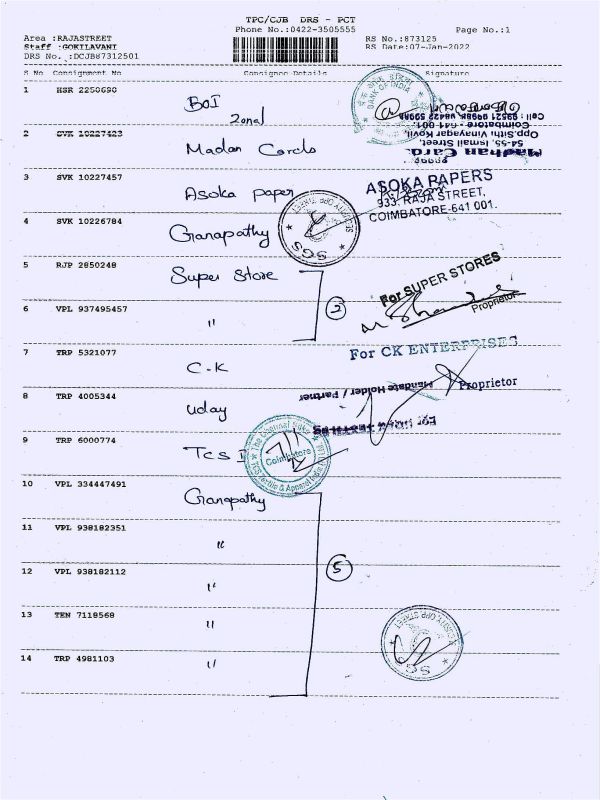 TPC/CJB DRS - PCT
Phone No.:0422-3505555
Page No.:1
Area :RAJASTREET
Staff :GOKILAVANI
DRS No.:DCJB87312501
RS No.:873125
RS Date:07-Jan-2022
S No Consignment No Consignee Details Signature
1 HSR 2250690 BOI Zonal
BANK OF INDIA
2 SVK 10227423 Madan Cards
Madhan Cards
54-55, Ismail Street,
Opp.Sithi Vinayagar Kovil,
Coimbatore - 641 001.
3 SVK 10227457 Asoka paper
ASOKA PAPERS
933, RAJA STREET,
COIMBATORE-641 001.
4 SVK 10226784 Ganapathy
SGS
5 RJP 2850248 Super Store
For SUPER STORES
Proprietor
6 VPL 937495457 "
2
7 TRP 5321077 C.K
For CK ENTERPRISES
Proprietor
8 TRP 4005344 Uday
Mandate Holder / Partner
9 TRP 6000774 TCS I
Coimbatore
10 VPL 334447491 Ganapathy
11 VPL 938182351 "
12 VPL 938182112 "
5
13 TEN 7118568 "
14 TRP 4981103 "
SGS